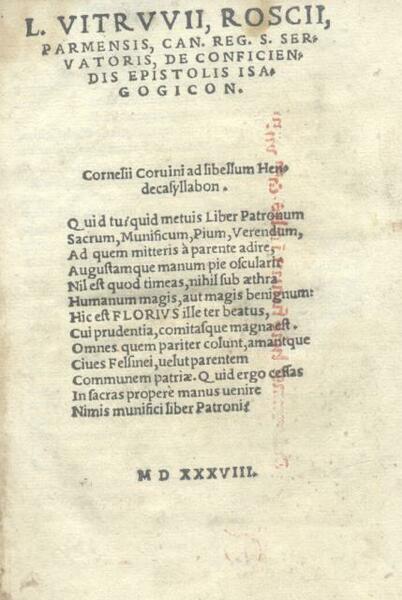 L. VITRVVII, ROSCII,
PARMENSIS, CAN. REG. S. SER-
VATORIS, DE CONFICIEN-
DIS EPISTOLIS ISA
GOGICON.
Cornelii Coruini ad libellum Hen-
decasyllabon.
Quid tu? quid metuis Liber Patronum
Sacrum, Munificum, Pium, Verendum,
Ad quem mitteris à parente adire,
Augustamque manum pie oscularis
Nil est quod timeas, nihil sub æthra
Humanum magis, aut magis benignum:
Hic est FLORIVS ille ter beatus,
Cui prudentia, comitasque magna est.
Omnes quem pariter colunt, amantque
Ciues Felsinei, uelut parentem
Communem patriæ. Quid ergo cessas
In sacras properè manus uenire
Nimis munifici liber Patroni?
M D XXXVIII.